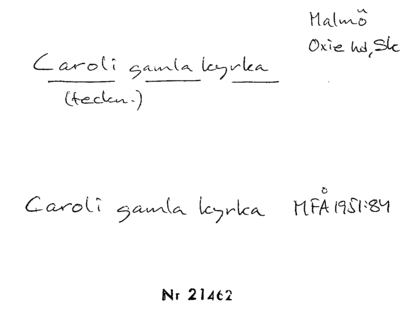 Malmö
Oxie hd, Sk
Caroli gamla kyrka
(teckn.)
Caroli gamla kyrka MFÅ 1951:84
Nr 21462